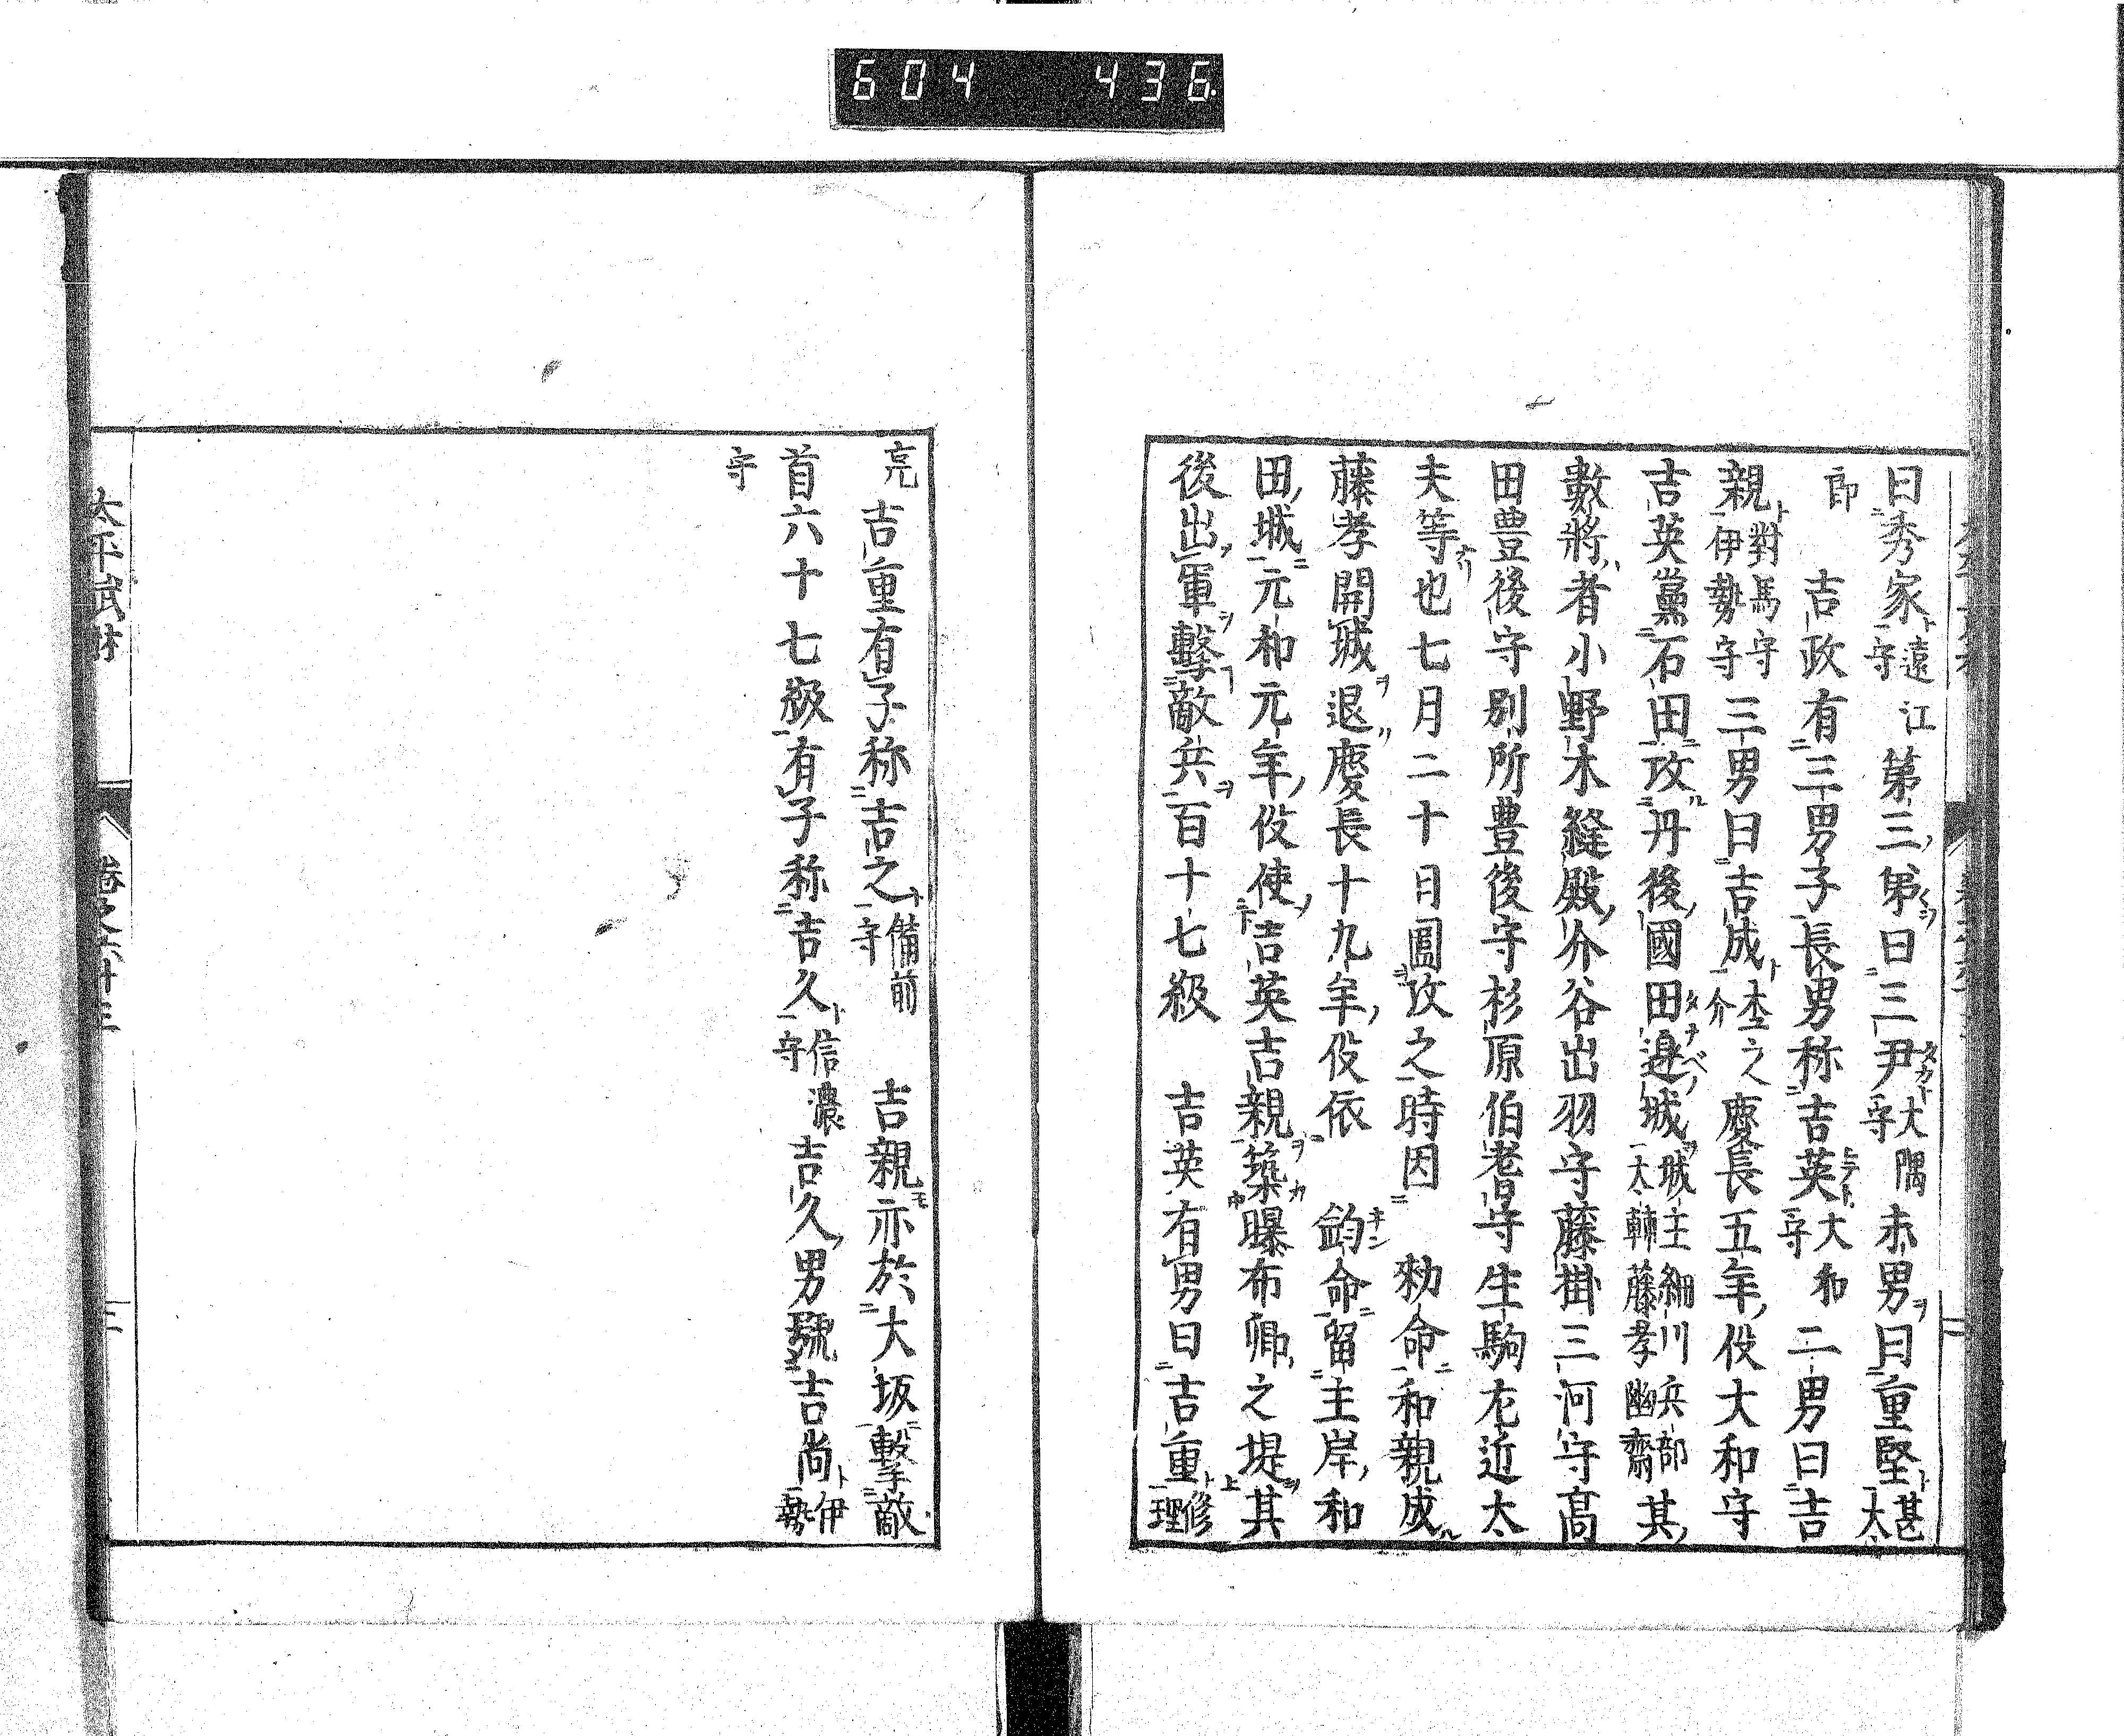 604 436
曰秀家遠江守第三弟曰三尹大隅守末男曰重堅甚太
郎　吉政有三男子長男称吉英大和守二男曰吉
親對馬守伊勢守三男曰吉成杢之介慶長五年伇大和守
吉英黨石田攻丹後國田邉城城主細川兵部太輔藤孝幽齋其
數將者小野木縫殿介谷出羽守藤掛三河守髙
田豊後守別所豊後守杉原伯耆守生駒左近太
夫等也七月二十日圍攻之時因　勅命和親成
藤孝開城退慶長十九年伇依　鈞命留主岸和
田城元和元年伇使吉英吉親築曝布郷之堤其
後出軍擊敵兵百十七級　吉英有男曰吉重修理
亮吉重有子称吉之備前守　吉親亦於大坂擊敵
首六十七級有子称吉久信濃守吉久男號吉尚伊勢
守
太平武林　卷之六十三　三